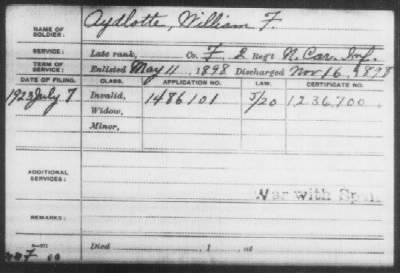 NAME OF SOLDIER: Aydlotte, William F.
SERVICE: Late rank, Co. F, 2 Reg't N. Car. Inf.
TERM OF SERVICE: Enlisted May 11 1898 Discharged Nov. 16, 1898
DATE OF FILING. CLASS. APPLICATION NO. LAW. CERTIFICATE NO.
1923 July 7 Invalid, 1486101 5/20 1236700
Widow,
Minor,
ADDITIONAL SERVICES:
War with Spain
REMARKS:
Died , 1 , at